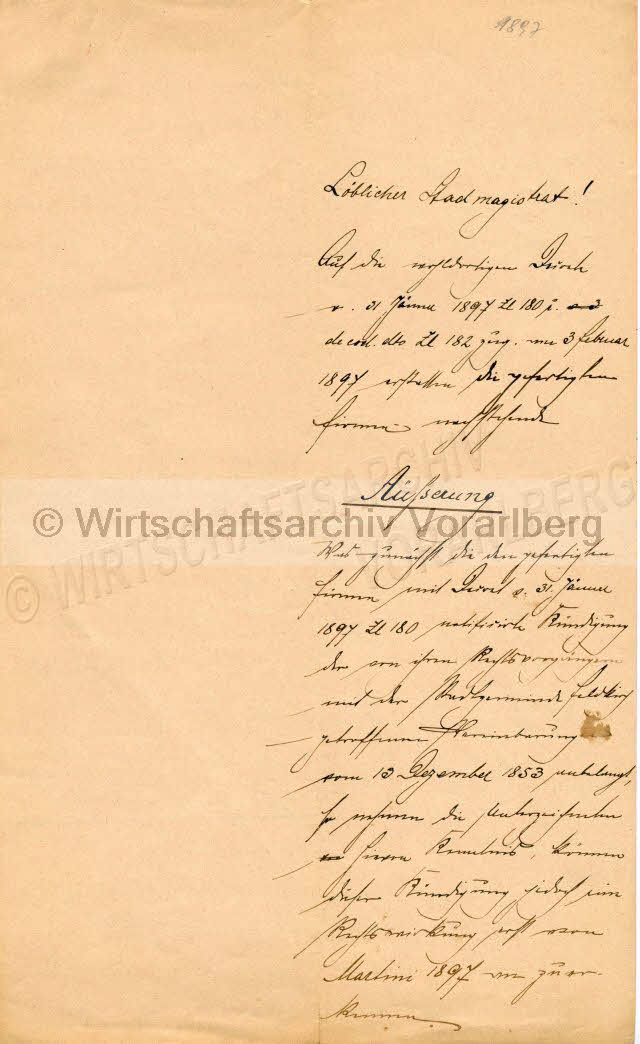 1897
Löblicher Stadmagistrat!
Auf die wohldortigen Decrete
v. 31 Jänner 1897 Zl 180 u.
de eod. dto Zl 182 zug. am 3 Februar
1897 erstatten die gefertigten
Firmen nachstehende
Äusserung
© Wirtschaftsarchiv Vorarlberg
© WIRTSCHAFTSARCHIV VORARLBERG
Was zunächst die den gefertigten
Firmen mit Decret v. 31. Jänner
1897 Zl 180 notificirte Kündigung
der von ihren Rechtsvorgängern
mit der Stadtgemeinde Feldkirch
getroffenen Vereinbarung
vom 13 Dezember 1853 anbelangt,
so nehmen die Unterzeichneten
hievon Kenntnis, können
dieser Kündigung jedoch eine
Rechtswirkung erst von
Martini 1897 an zuer-
kennen.